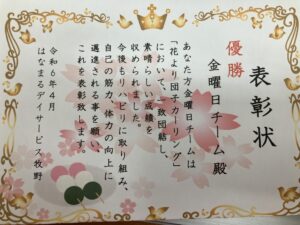 表彰状
優勝
金曜日チーム殿
あなた方金曜日チームは
「花より団子カーリング」
において、一致団結し、
素晴らしい成績を
収められました。
今後もリハビリに取り組み、
自己の筋力、体力の向上に
邁進される事を願い、
これを表彰致します。
令和6年4月
はなまるデイサービス牧野